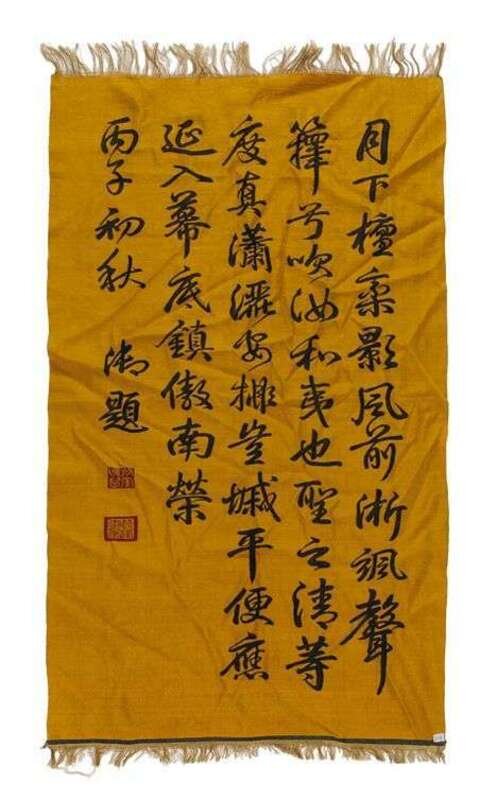 月下檀栾影風前淅颯聲
籜兮吹汝和夷也聖之清等
度真瀟灑安排豈墄平便應
延入幕底鎮傲南榮
丙子初秋 御題